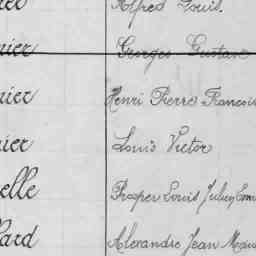 Alfred Louis.
nier Georges Gustave
nier Henri Pierre Francois
nier Louis Victor
elle Prosper Louis Julien
lard Alexandre Jean